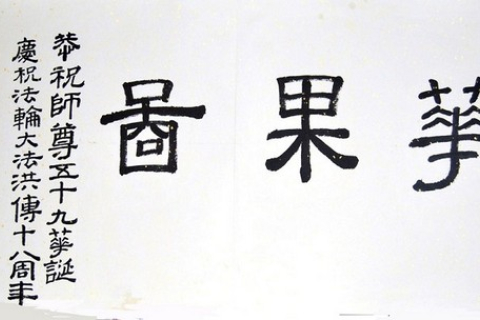 華果啚
恭祝師尊五十九華誕
慶祝法輪大法洪傳十八周年